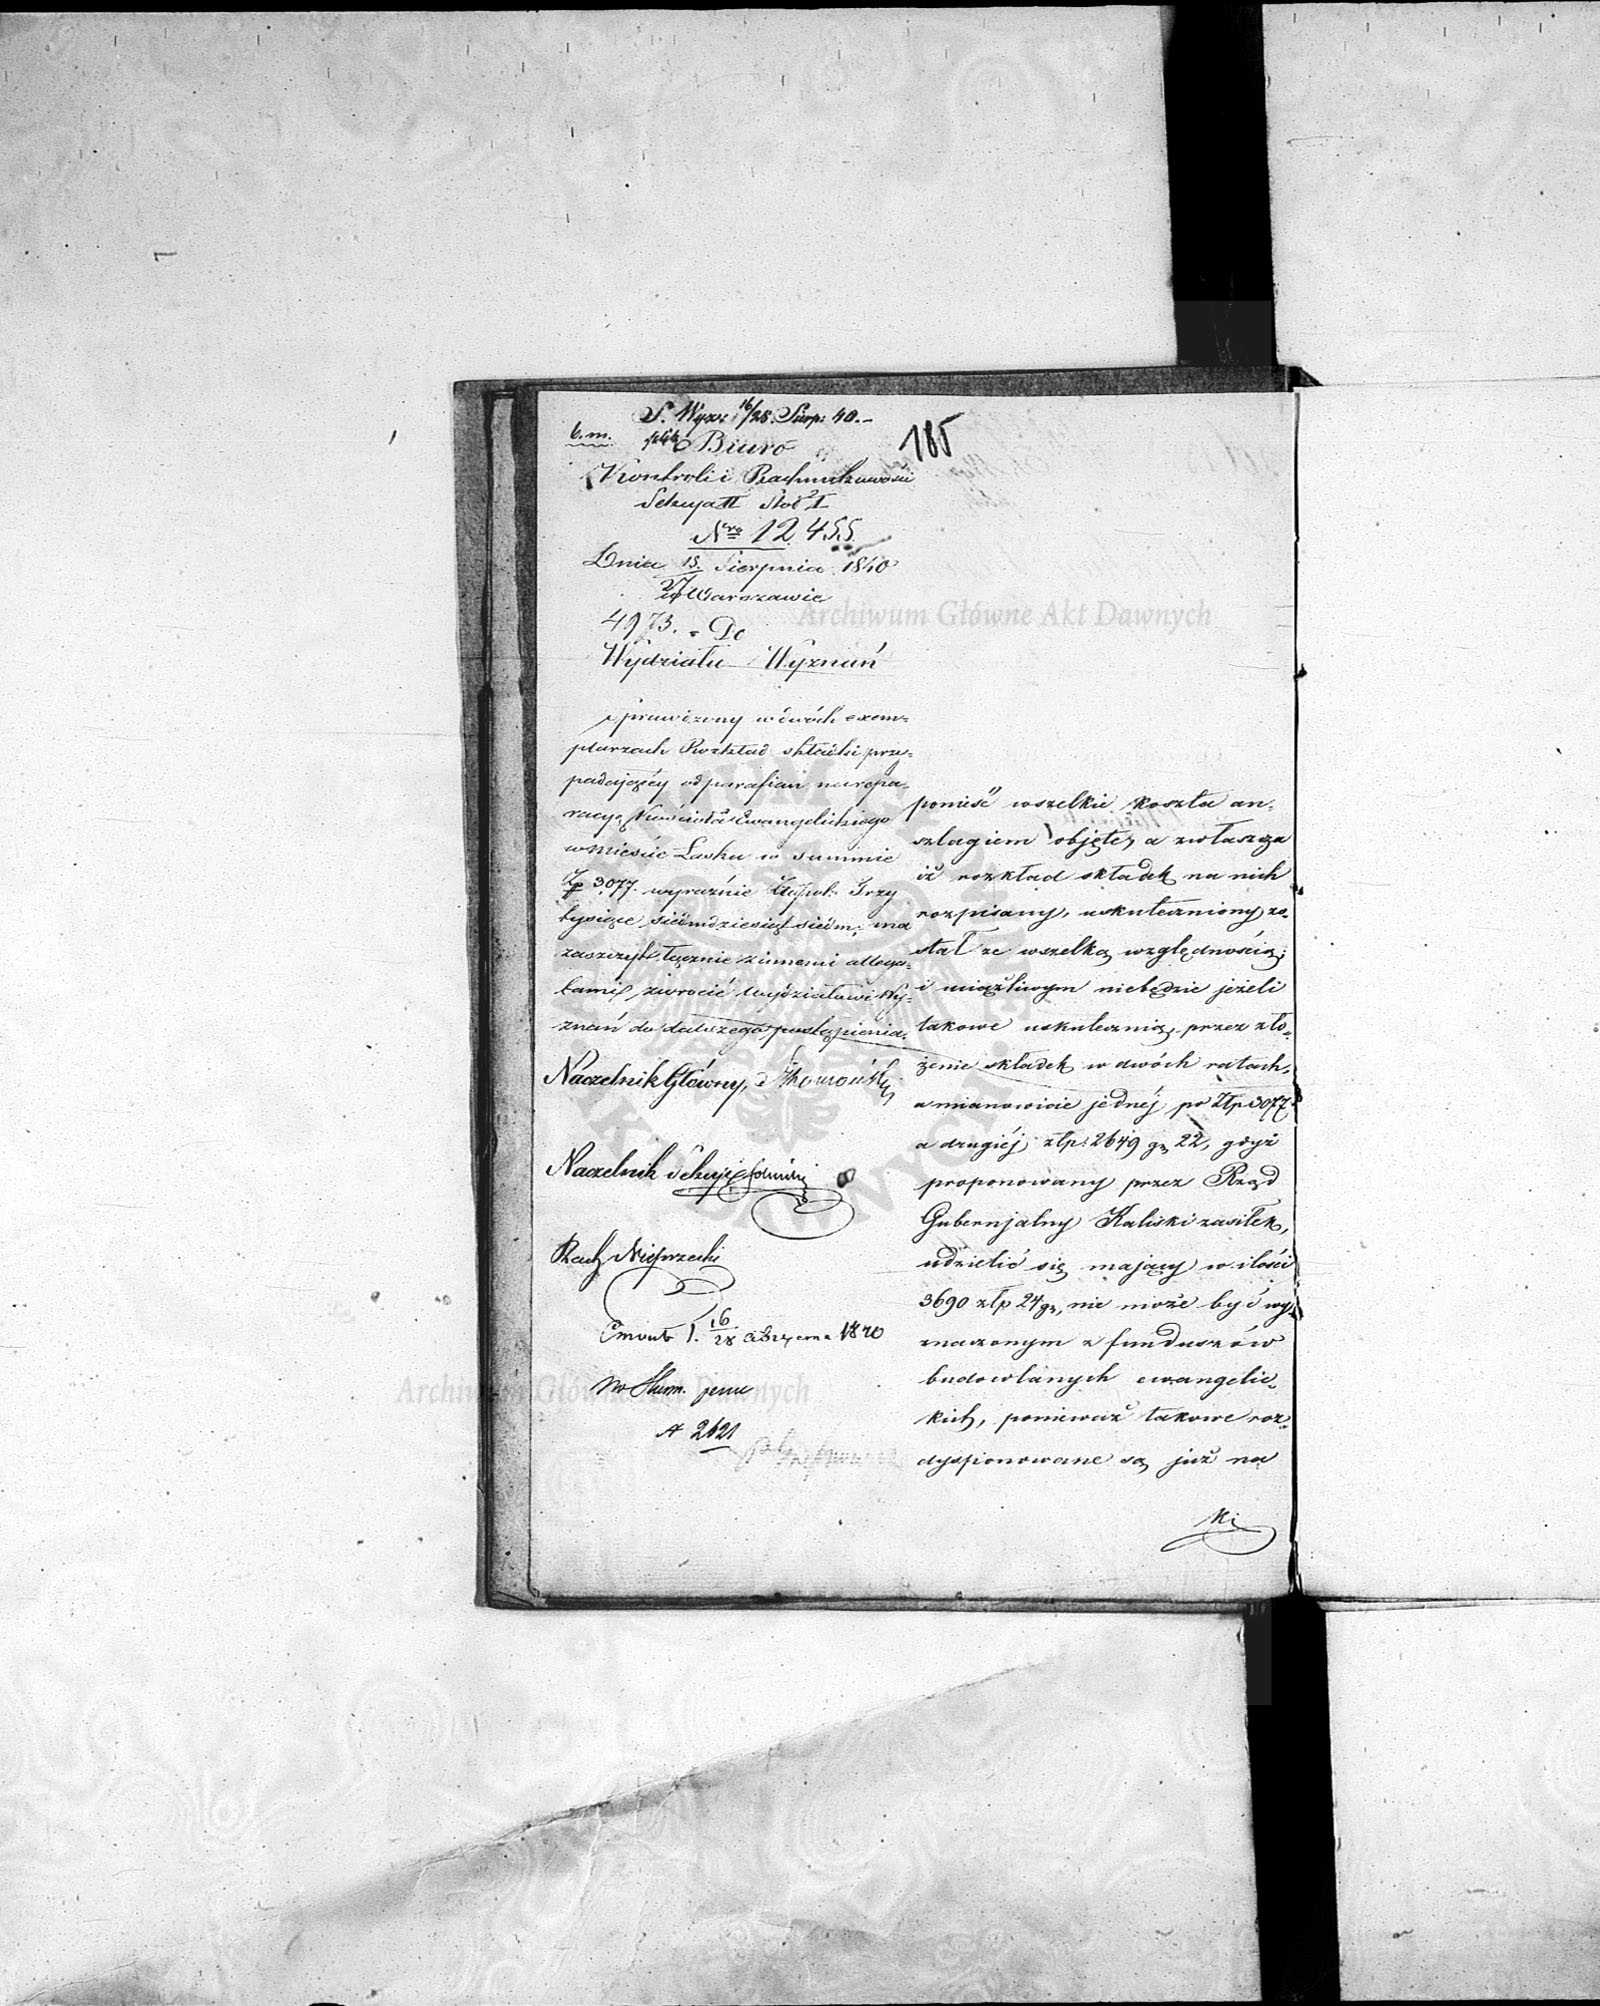 S. Wyzn: 16/28. Sierp: 40.-
185
b. m.
Biuro
Kontroli i Rachunkowości
Sekcya II Stół I
Nro 12455
Dnia 15/27 Sierpnia 1840
w Warszawie
4973. Do
Wydziału Wyznań
Sprawdzony w dwóch exem-
plarzach Rozkład składki przy-
padającéy od parafian na repa-
racyą Kościoła Ewangelickiego
w mieście Łasku w summie
Zp 3,077. wyraźnie Złpol: Trzy
tysiące siedmdziesiąt siedm; ma
zaszczyt łącznie z innemi allega-
tami zwrocić Wydziałowi Wy-
znań do dalszego postąpienia.
Naczelnik Główny,
Naczelnik Sekcyi
Rach
16/28 1840
A 2621
ponieść wszelkie koszta an-
szlagiem objęte, a zwłaszcza
iż rozkład składek na nich
rozpisany, uskuteczniony zo-
stał ze wszelką względnością;
i uciążliwym niebędzie jeżeli
takowe uskutecznią przez zło-
żenie składek w dwóch ratach,
a mianowicie jednéj po Złp 3077
a drugiéj złp: 2649 gr 22, gdyż
proponowany przez Rząd
Gubernjalny Kaliski zasiłek,
udzielić się mający w ilości
3690 złp 24 gr, nie może być wy-
znaczonym z funduszów
budowlanych ewangelic-
kich, ponieważ takowe roz-
dysponowane są już na
Archiwum Główne Akt Dawnych
Archiwum Główne Akt Dawnych